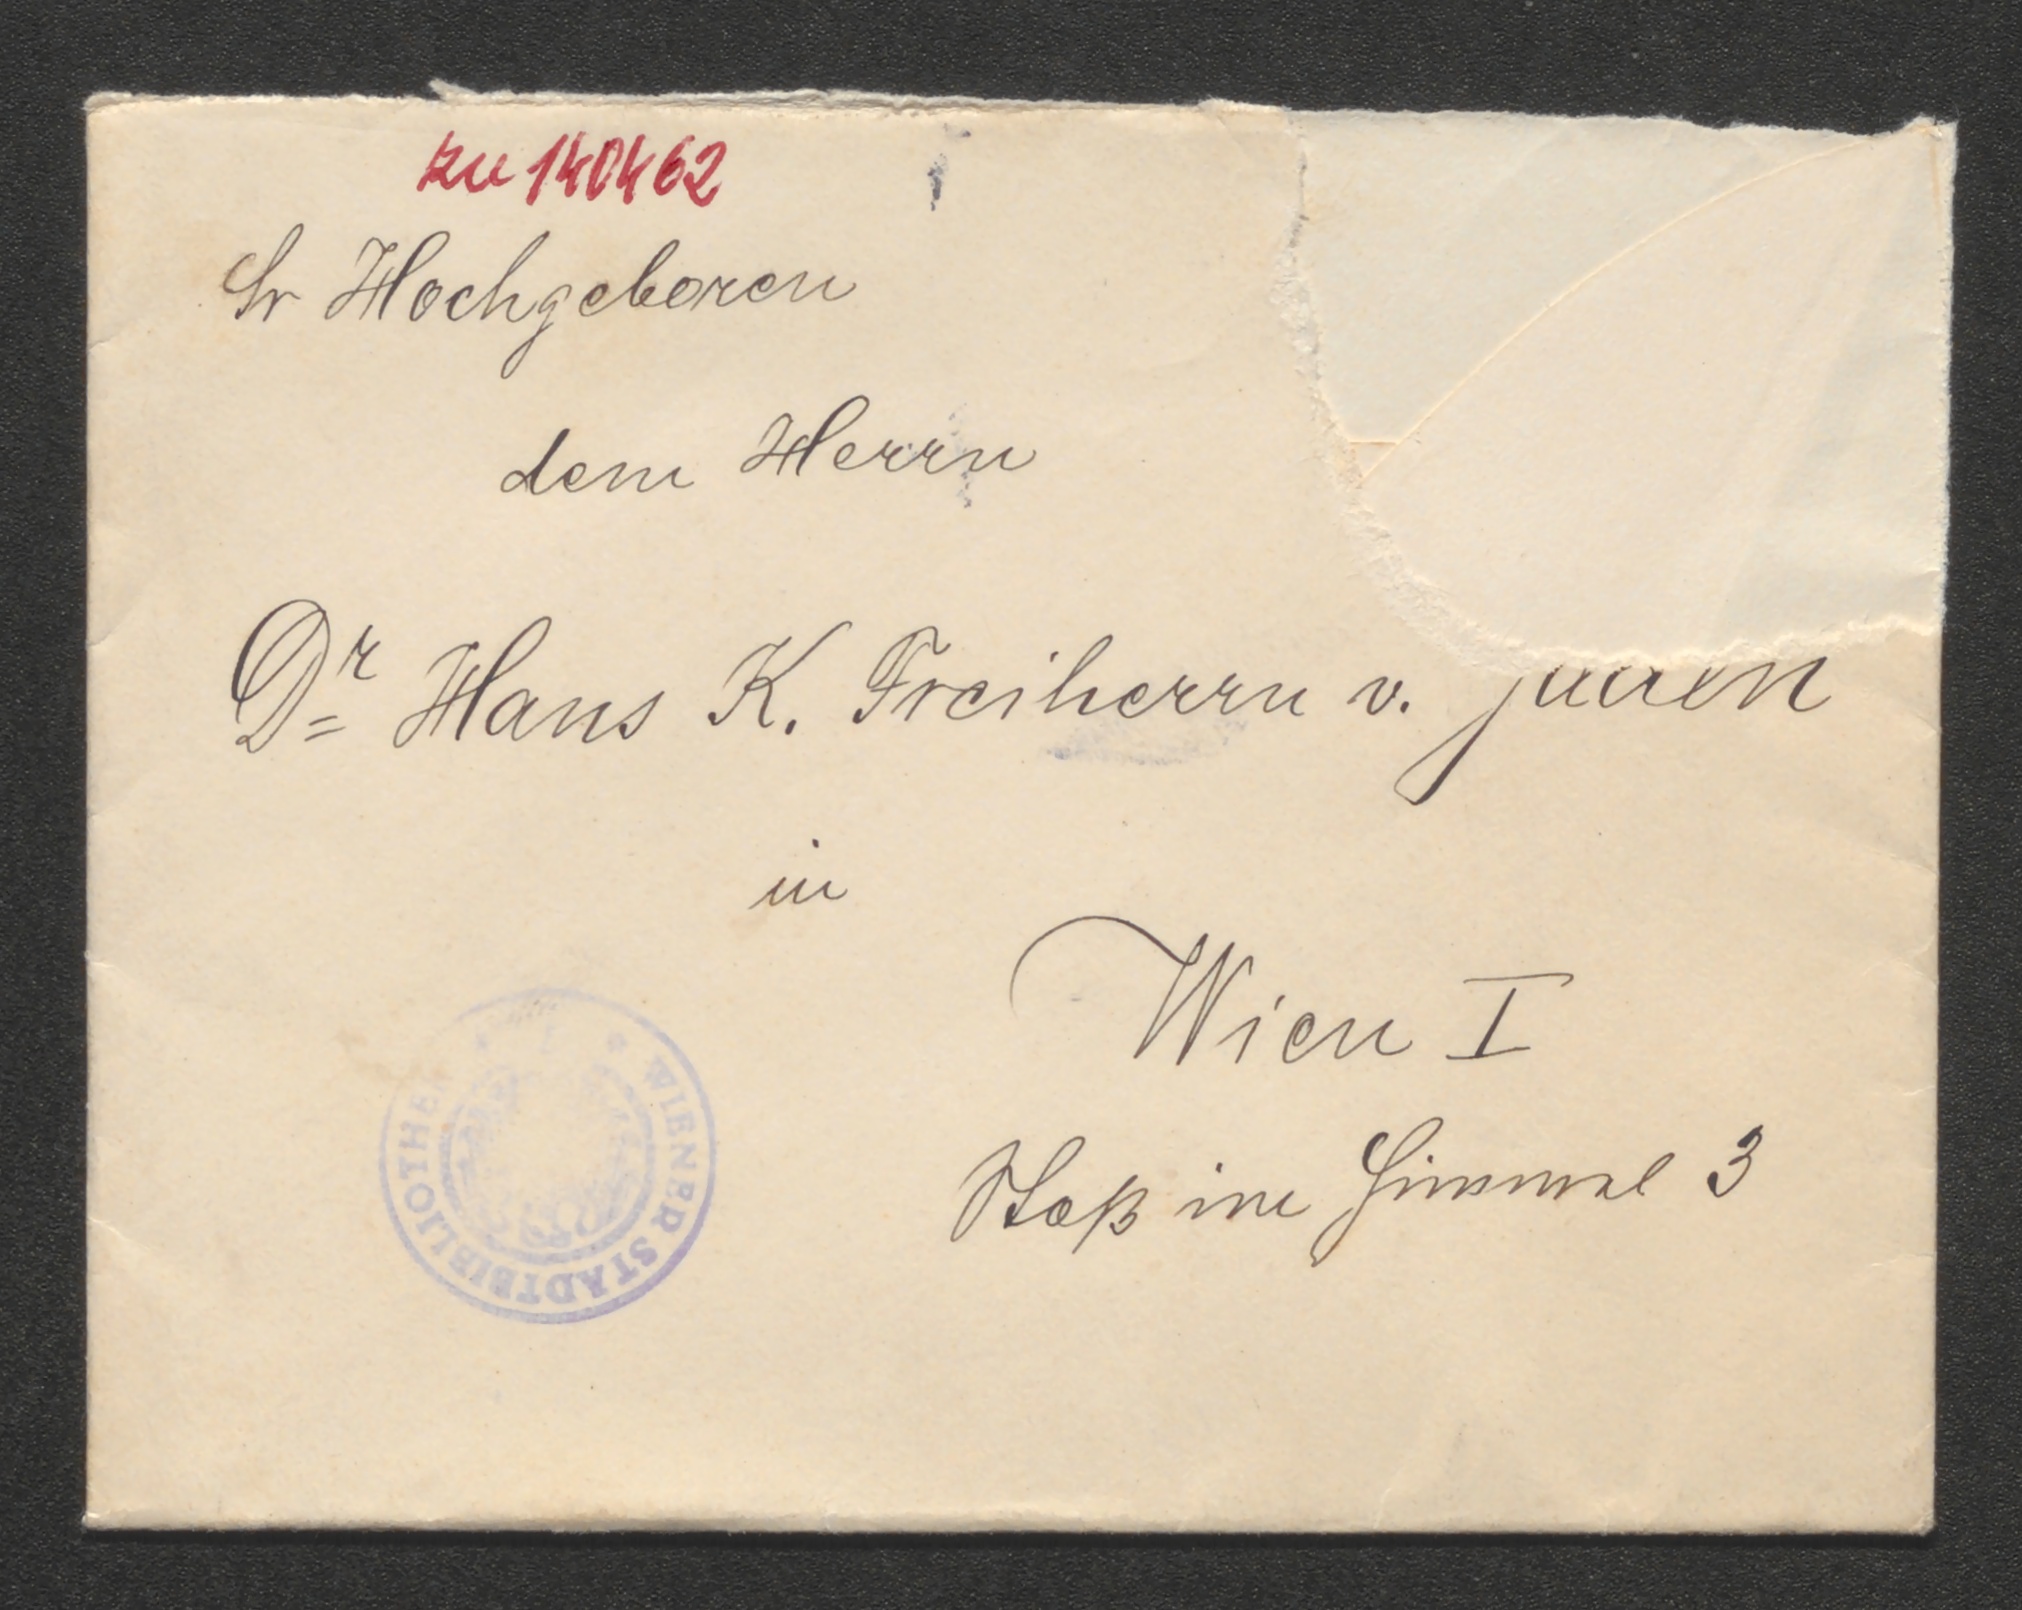 zu 140462
Sr Hochgeboren
dem Herrn
Dr Hans K. Freiherrn v. Jaden
in
Wien I
Stoß im Himmel 3
WIENER STADTBIBLIOTHEK